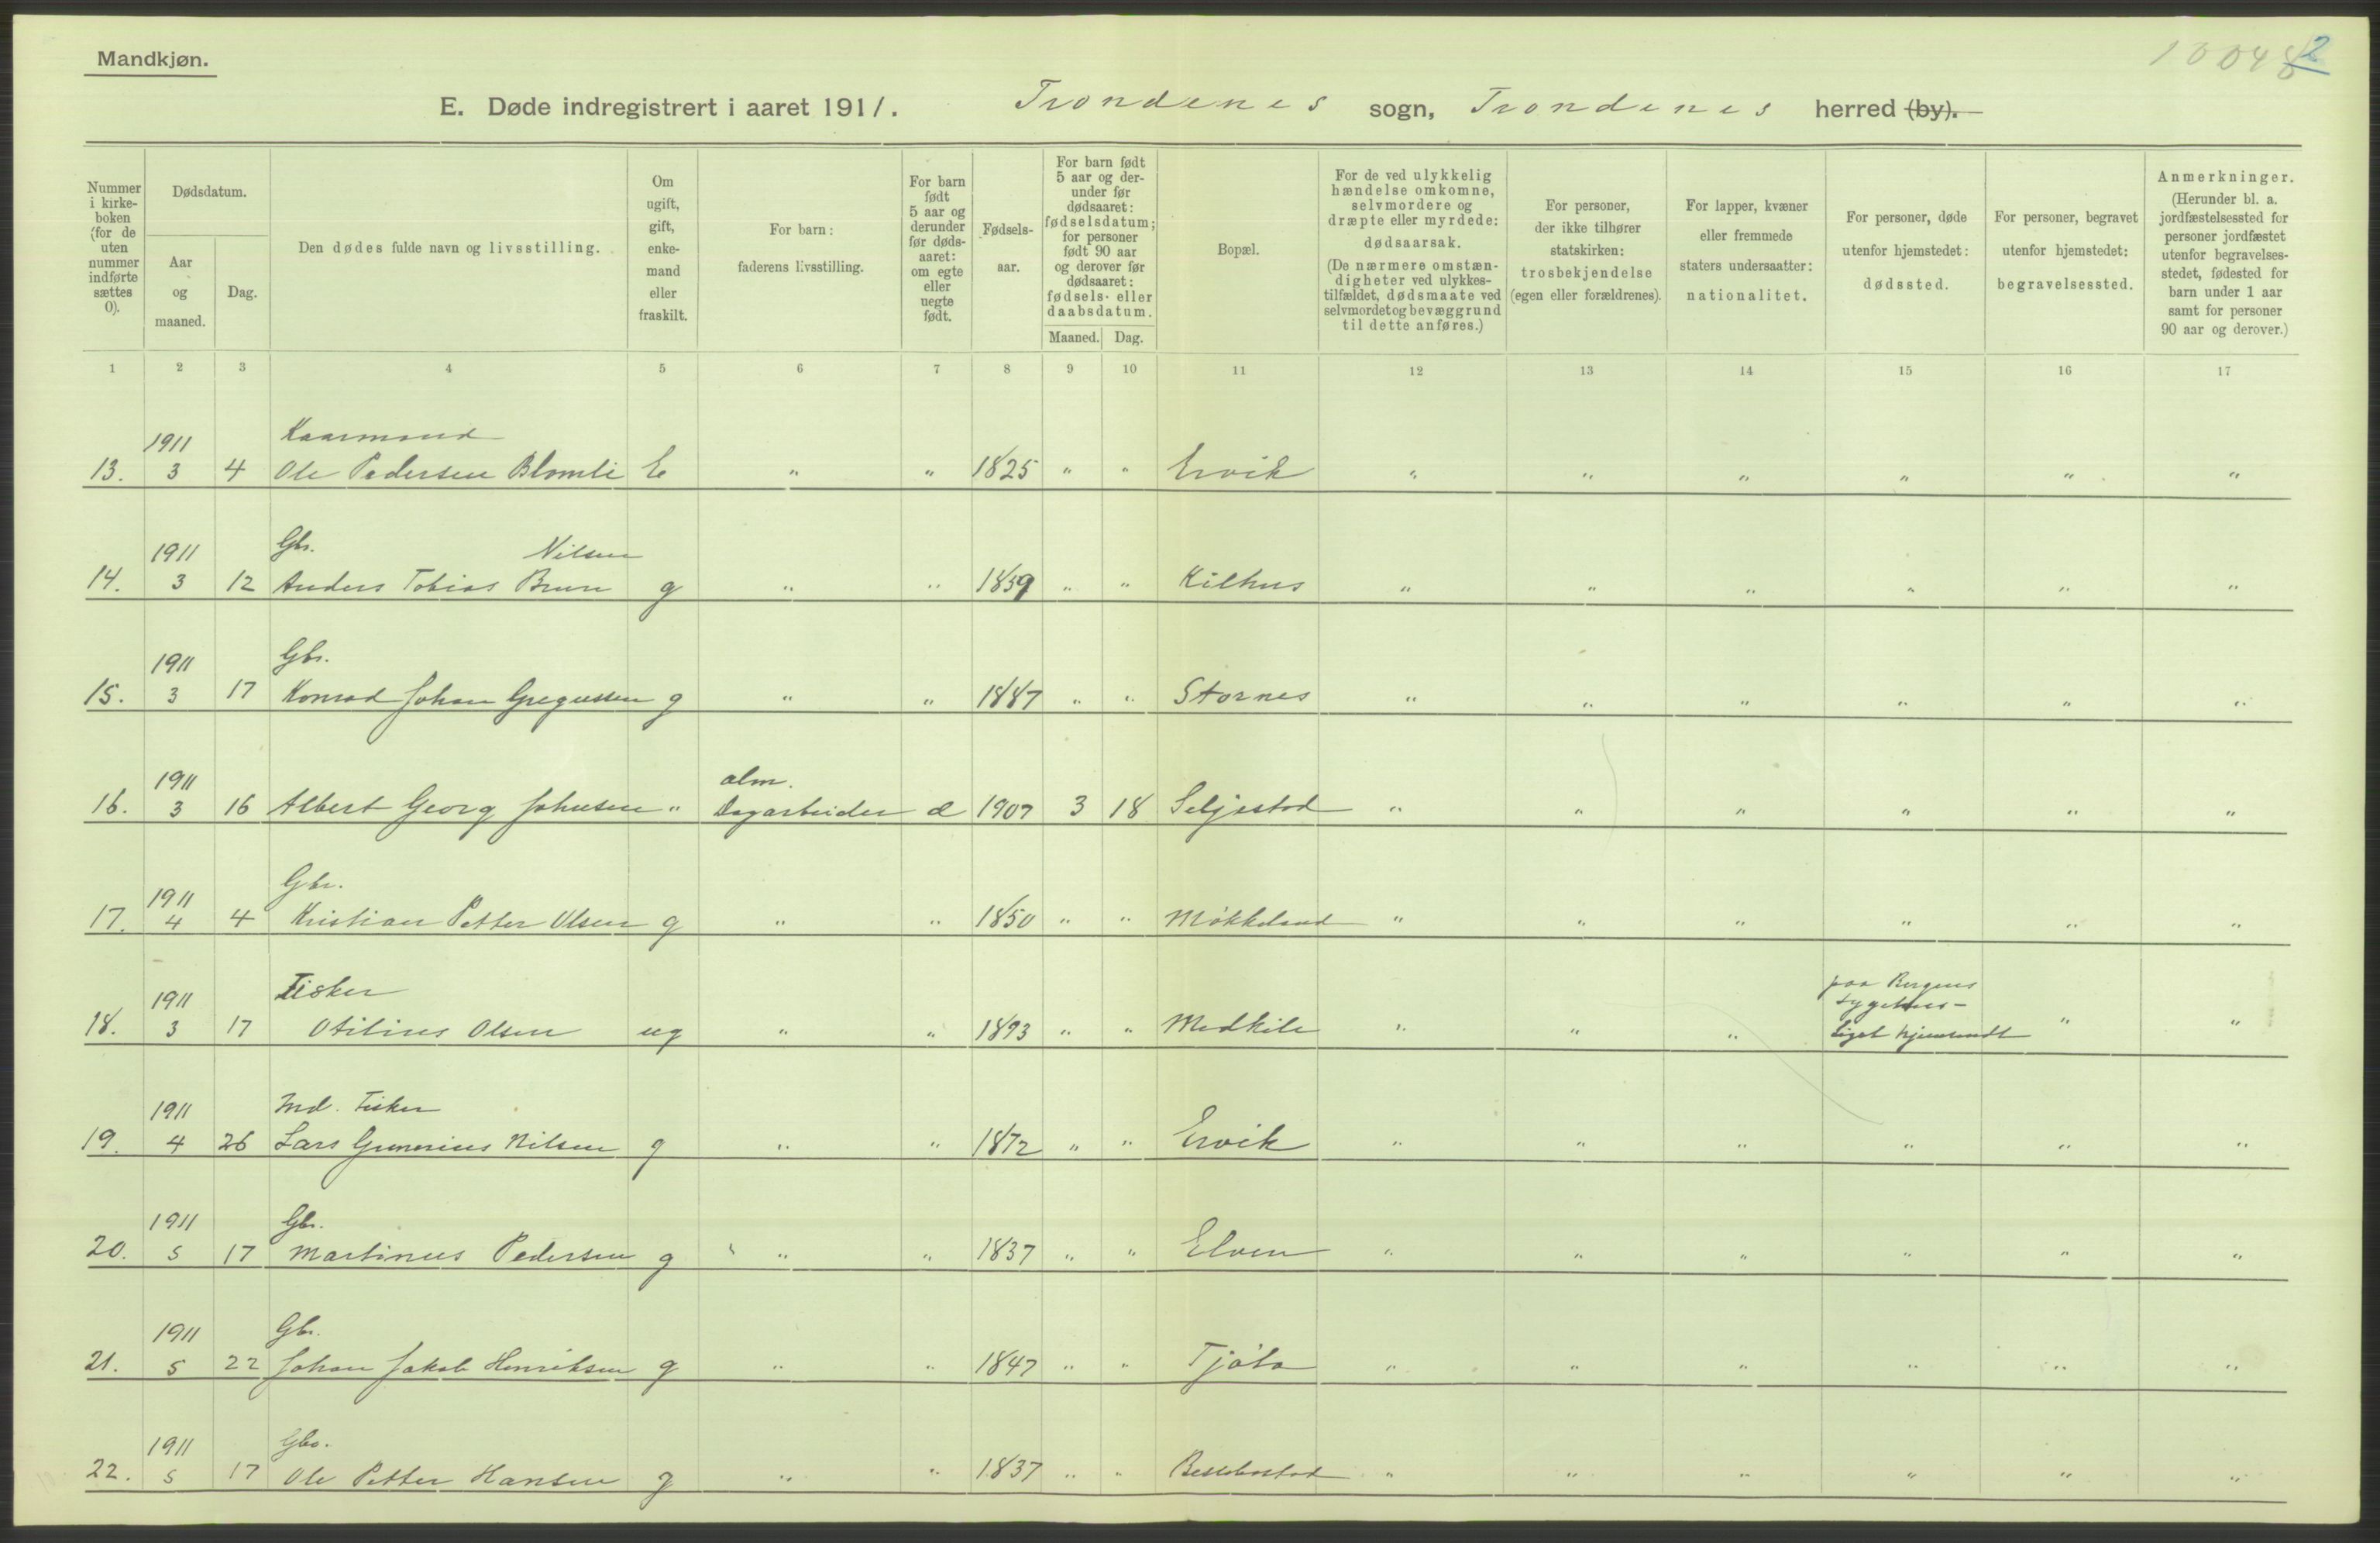 Mandkjøn.
10048 2
E. Døde indregistrert i aaret 1911. Trondenes sogn, Trondenes herred (by).
Nummer i kirkeboken (for de uten nummer indførte sættes 0).
Dødsdatum.
Aar og maaned.
Dag.
Den dødes fulde navn og livsstilling.
Om ugift, gift, enkemand eller fraskilt.
For barn: faderens livsstilling.
For barn født 5 aar og derunder før dødsaaret: om egte eller uegte født.
Fødselsaar.
For barn født 5 aar og derunder før dødsaaret: fødselsdatum; for personer født 90 aar og derover før dødsaaret: fødsels- eller daabsdatum.
Maaned. Dag.
Bopæl.
For de ved ulykkelig hændelse omkomne, selvmordere og dræpte eller myrdede: dødsaarsak. (De nærmere omstændigheter ved ulykkestilfældet, dødsmaate ved selvmordet og bevæggrund til dette anføres.)
For personer, der ikke tilhører statskirken: trosbekjendelse (egen eller forældrenes).
For lapper, kvæner eller fremmede staters undersaatter: nationalitet.
For personer, døde utenfor hjemstedet: dødssted.
For personer, begravet utenfor hjemstedet: begravelsessted.
Anmerkninger. (Herunder bl. a. jordfæstelsessted for personer jordfæstet utenfor begravelsesstedet, fødested for barn under 1 aar samt for personer 90 aar og derover.)
1 2 3 4 5 6 7 8 9 10 11 12 13 14 15 16 17
1911 Kaarmand
13. 3 4 Ole Pedersen Blomli E " " 1825 " " Ervik " " " " " "
1911 Gbr. Nilsen
14. 3 12 Anders Tobias Brun g " " 1859 " " Kilhus " " " " " "
1911 Gbr.
15. 3 17 Konrad Johan Gregussen g " " 1887 " " Stornes " " " " " "
1911 alm.
16. 3 16 Albert Georg Johnsen " Dagarbeider æ 1907 3 18 Seljestad " " " " " "
1911 Gbr.
17. 4 4 Kristian Petter Olsen g " " 1850 " " Møkkeland " " " " " "
1911 Fisker paa Bergens sygehus-
18. 3 17 Otilius Olsen ug " " 1893 " " Medkile " " " liget hjemsendt " "
1911 Ind. Fisker
19. 4 26 Lars Gunerius Nilsen g " " 1872 " " Ervik " " " " " "
1911 Gbr.
20. 5 17 Martinus Pedersen g " " 1837 " " Elven " " " " " "
1911 Gbr.
21. 5 22 Johan Jakob Henriksen g " " 1847 " " Tjøta " " " " " "
1911 Gbr.
22. 5 17 Ole Petter Hansen g " " 1837 " " Bessebostad " " " " " "